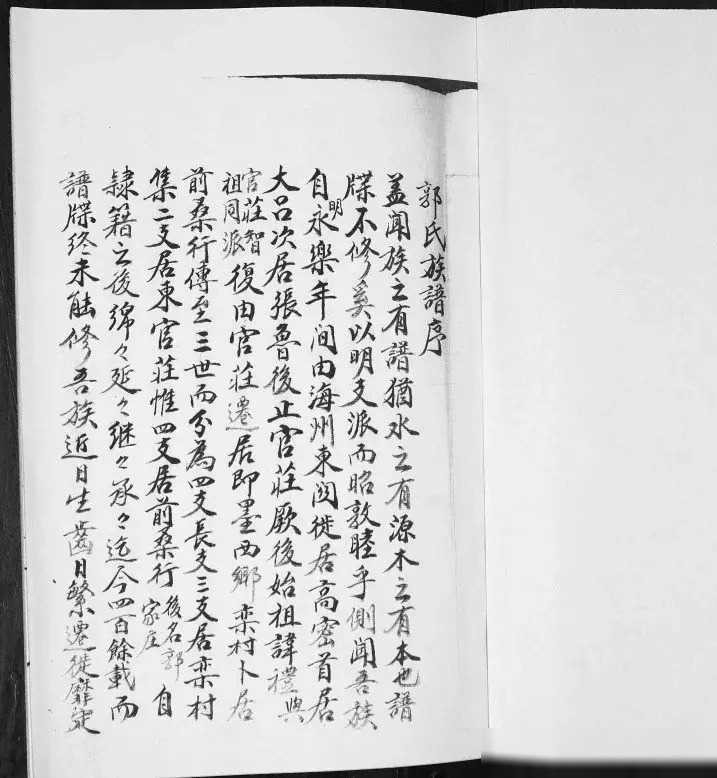 郭氏族譜序
盖聞族之有譜猶水之有源木之有本也譜
牒不修奚以明支派而昭敦睦乎側聞吾族
自明永樂年间由海州東関徙居高密首居
大呂次居張魯後止官莊厥後始祖諱禮與
官莊智祖同派復由官莊遷居即墨西鄉栾村卜居
前桑行傳至三世而分為四支長支三支居栾村
集二支居東官莊惟四支居前桑行後名郭家庄自
隷籍之後綿々延々継々承々迄今四百餘載而
譜牒终未能修吾族近日生齒日繁遷徙靡定